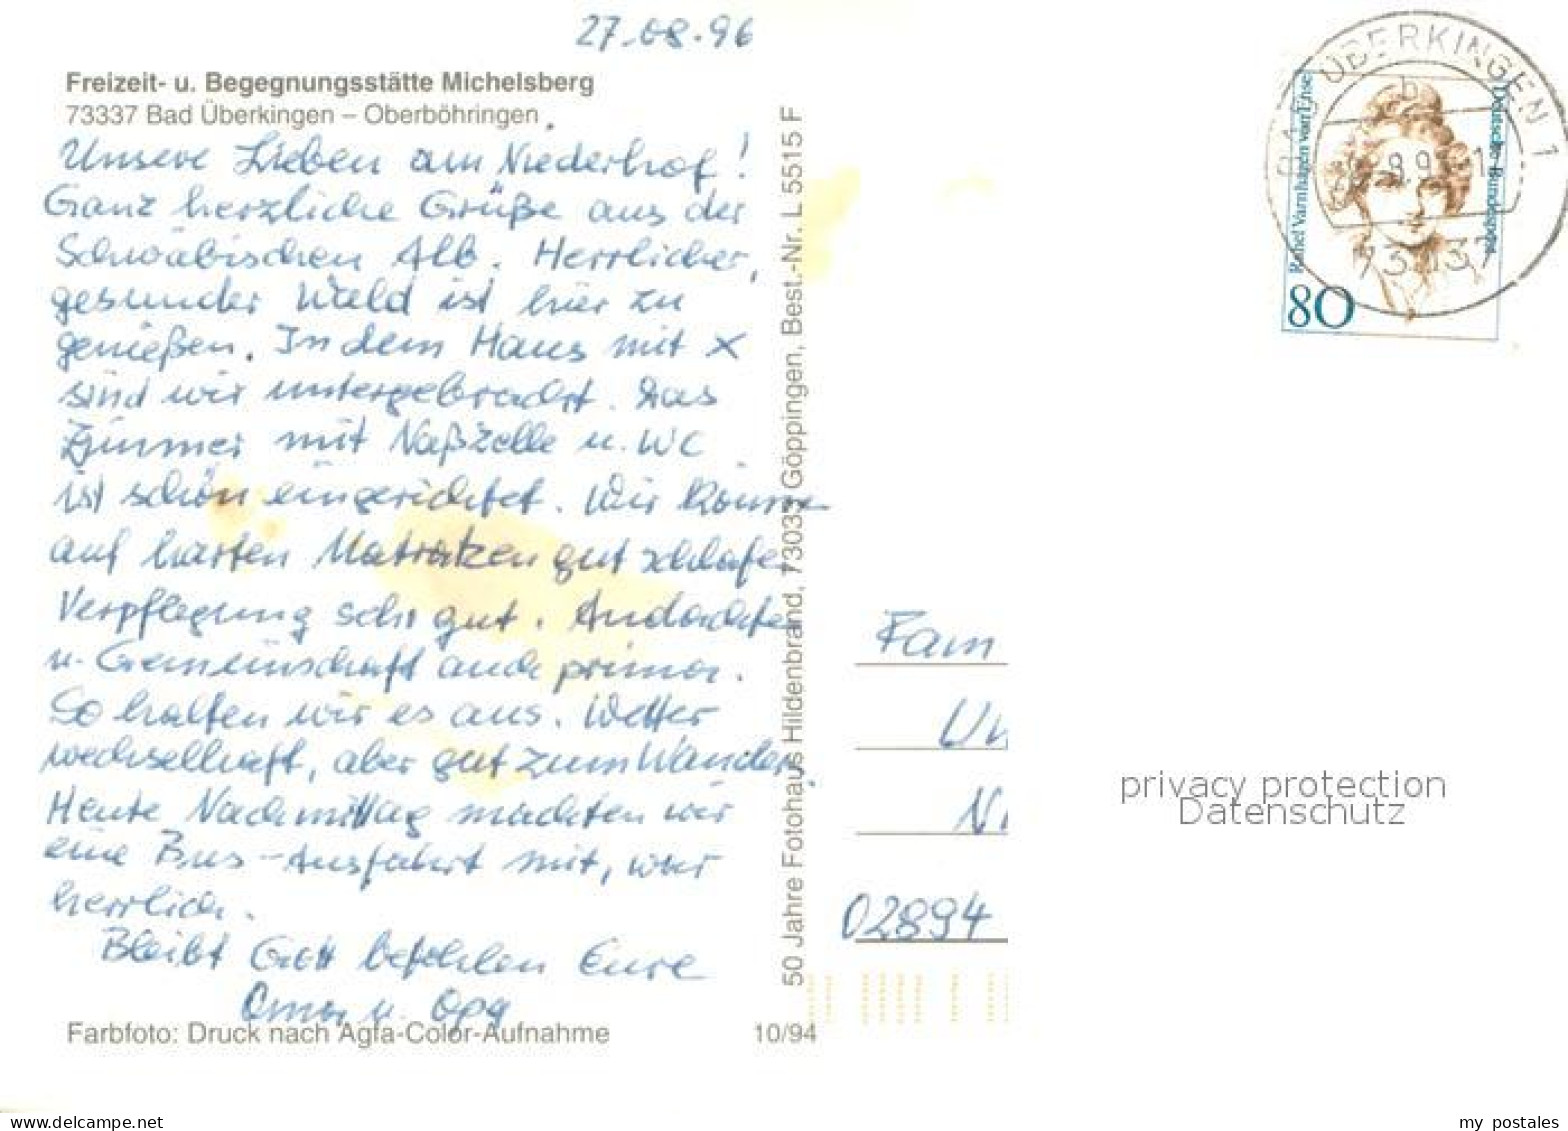 27.08.96
Freizeit- u. Begegnungsstätte Michelsberg
73337 Bad Überkingen – Oberböhringen
Unsere Lieben am Niederhof!
Ganz herzliche Grüße aus der
Schwäbischen Alb. Herrlicher,
gesunder Wald ist hier zu
genießen. In dem Haus mit x
sind wir untergebracht. Das
Zimmer mit Naßzelle u. WC
ist schön eingerichtet. Wir könne
auf harten Matratzen gut schlafen
Verpflegung sehr gut. Andachten
u. Gemeinschaft auch prima.
So halten wir es aus. Wetter
wechselhaft, aber gut zum Wandern.
Heute Nachmittag machten wir
eine Bus-Ausfahrt mit, war
herrlich.
Bleibt Gott befohlen Eure
Oma u. Opa
Farbfoto: Druck nach Agfa-Color-Aufnahme
10/94
50 Jahre Fotohaus Hildenbrand, 73033 Göppingen, Best.-Nr. L 5515 F
BAD ÜBERKINGEN 1
b
73337
Rahel Varnhagen von Ense
Deutsche Bundespost
80
Fam
02894
privacy protection
Datenschutz
my postales